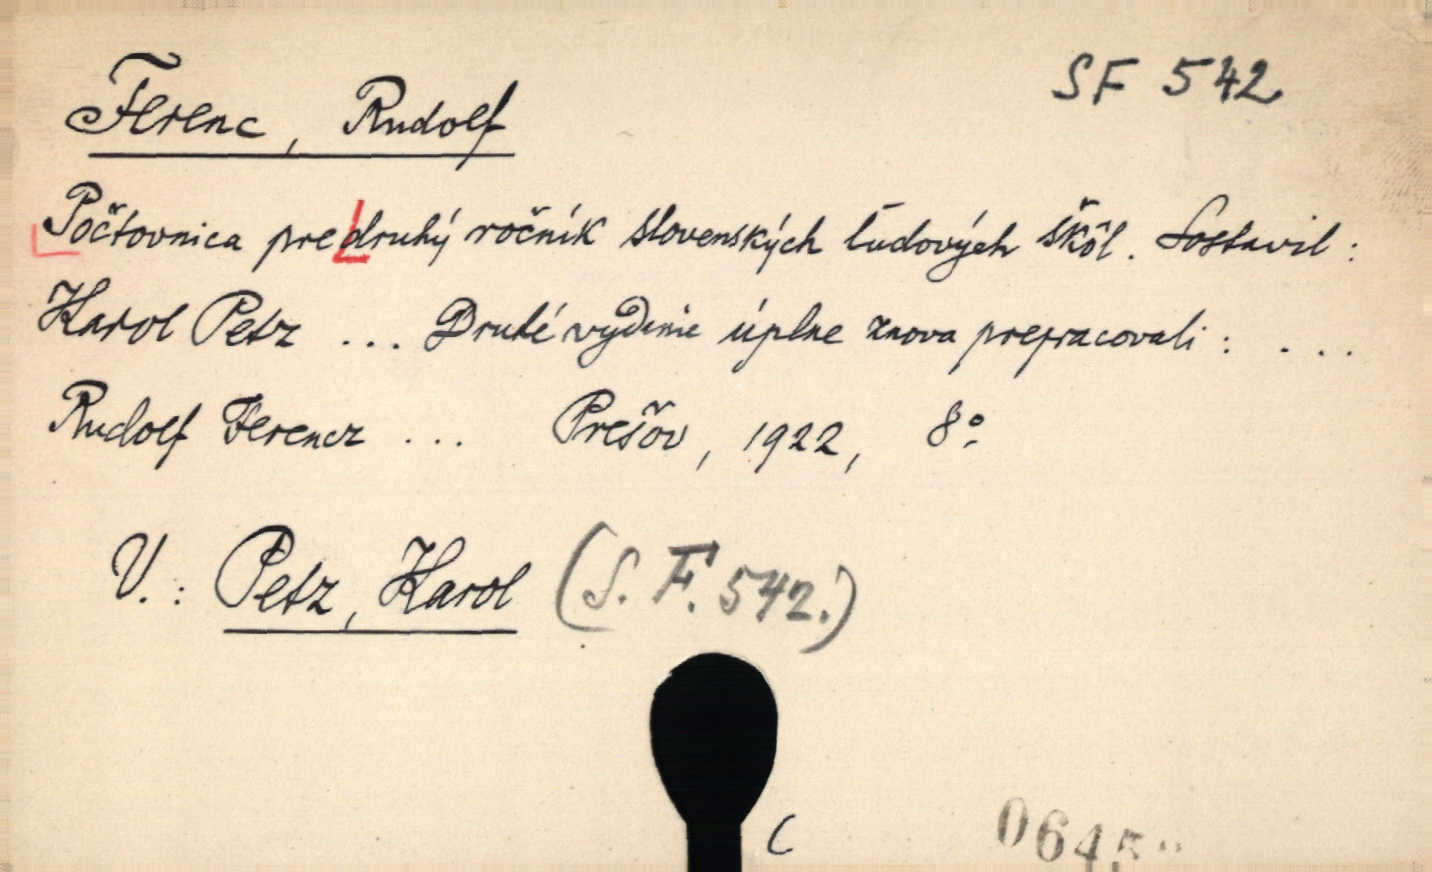 SF 542
Ferenc, Rudolf
Počtovnica pre druhý ročník slovenských ľudových škôl. Sostavil:
Karol Petz ... Druhé vydanie úplne znova prepracovali: ...
Rudolf Ferencz ... Prešov, 1922, 8°
V.: Petz, Karol (S. F. 542.)
C
0645